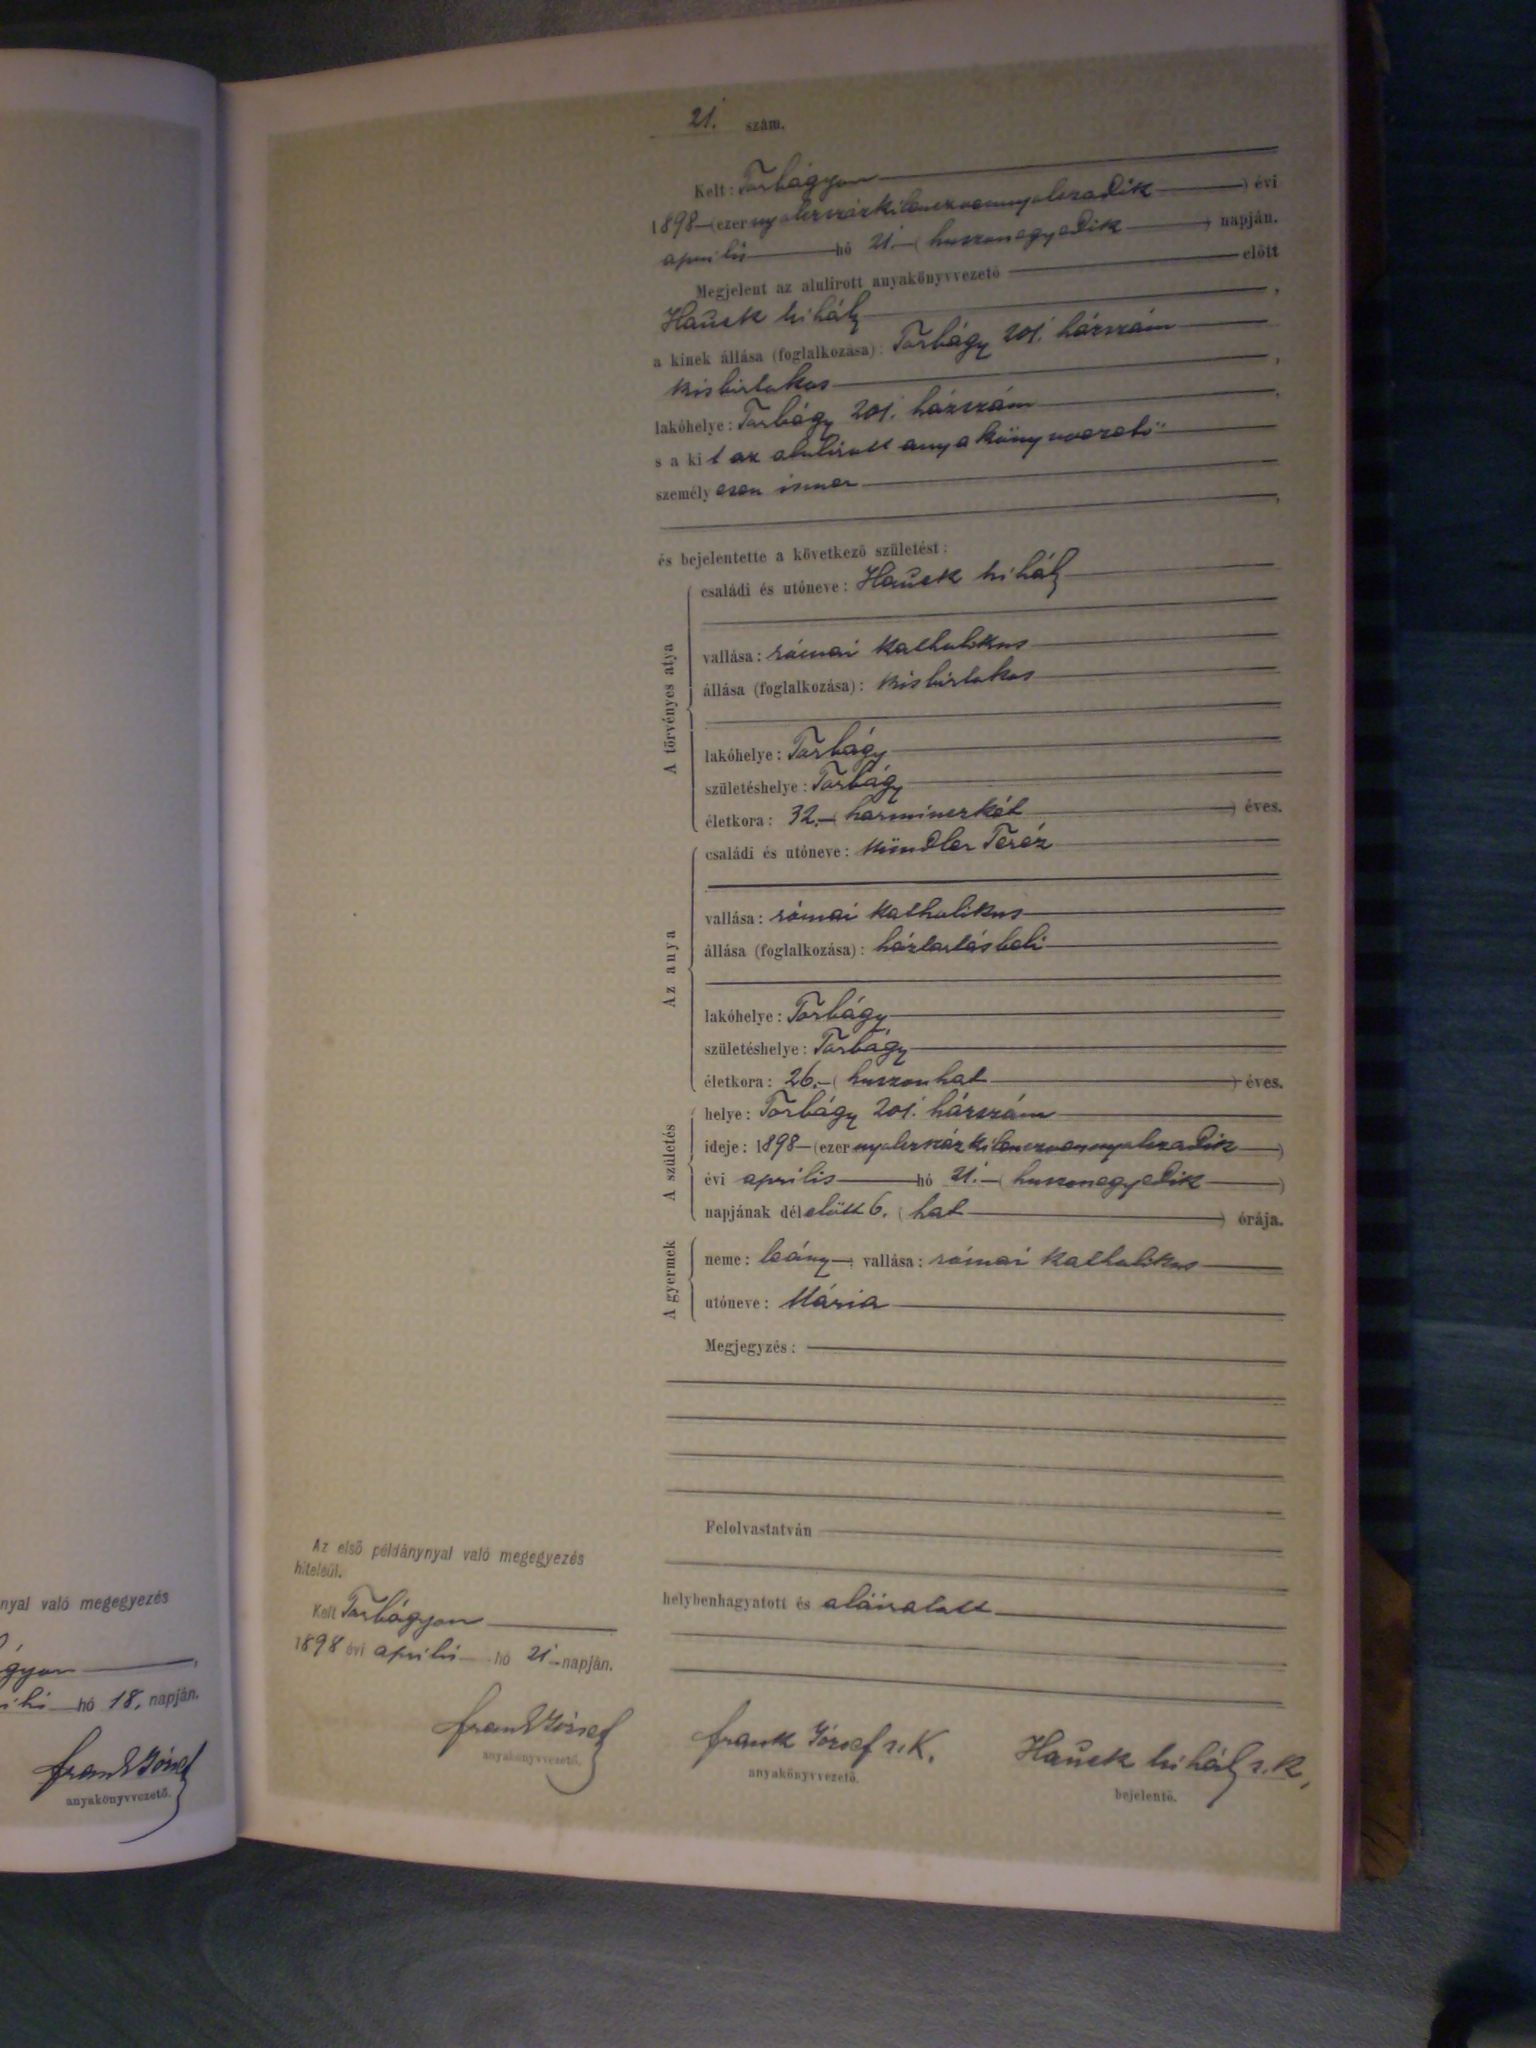 21. szám.
Kelt: Torbágyon
1898 (ezernyolczszázkilenczvennyolczadik) évi
április hó 21. (huszonegyedik) napján.
Megjelent az alulirott anyakönyvvezető előtt
Hauck Mihály,
a kinek állása (foglalkozása): Torbágy 201. házszám
kisbirtokos,
lakóhelye: Torbágy 201. házszám,
s a kit az alulirott anyakönyvvezető
személyesen ismer
,
és bejelentette a következő születést:
A törvényes atya
családi és utóneve: Hauck Mihály
vallása: római katholikus
állása (foglalkozása): kisbirtokos
lakóhelye: Torbágy
születéshelye: Torbágy
életkora: 32. (harminczkét) éves.
Az anya
családi és utóneve: Kindler Teréz
vallása: római katholikus
állása (foglalkozása): háztartásbeli
lakóhelye: Torbágy
születéshelye: Torbágy
életkora: 26. (huszonhat) éves.
A születés
helye: Torbágy 201. házszám
ideje: 1898 (ezernyolczszázkilenczvennyolczadik)
évi április hó 21. (huszonegyedik)
napjának délelőtt 6. (hat) órája.
A gyermek
neme: leány; vallása: római katholikus
utóneve: Mária
Megjegyzés:
Felolvastatván
helybenhagyatott és aláiratott
Az első példánynyal való megegyezés
hiteléül.
Kelt Torbágyon
1898 évi április hó 21 napján.
Frank József
anyakönyvvezető.
Frank József s. k.
anyakönyvvezető.
Hauck Mihály s. k.
bejelentő.
nyal való megegyezés
gyon,
hó 18. napján.
Frank József
anyakönyvvezető.